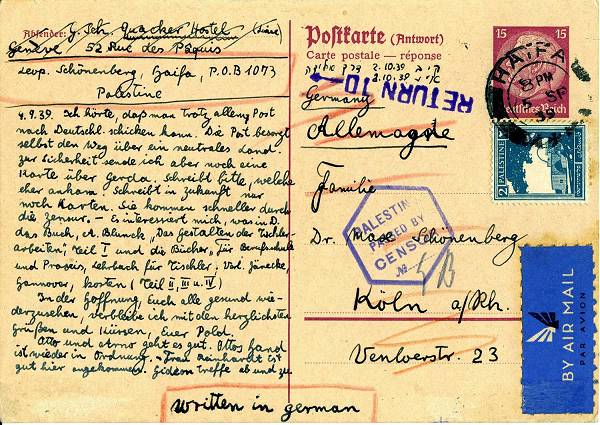 Absender: J. Sch. Quäcker Hostel
Genève 52 Rue des Pâquis
Leop. Schönenberg, Haifa, P.O.B 1073
Palestine
4.9.39. Ich hörte, daß man trotz allem Post
nach Deutschl. schicken kann. Die Post besorgt
selbst den Weg über ein neutrales Land.
Zur Sicherheit sende ich aber noch eine
Karte über Gerda. Schreibt bitte, welche
eher ankam. Schreibt in Zukunft nur
noch Karten. Sie kommen schneller durch
die Zensur. – Es interessiert mich, was in D.
das Buch, A. Blunck „Das Gestalten der Tischler-
arbeiten", Teil I und die Bücher, „Für Berufsschule
und Praxis, Lehrbuch für Tischler, Verl. Jänecke,
Hannover, kosten (Teil II, III u. IV)
In der Hoffnung, Euch alle gesund wie-
derzusehen, verbleibe ich mit den herzlichsten
Grüßen und Küssen, Euer Pold.
Otto und Arno geht es gut. Ottos Hand
ist wieder in Ordnung. Frau Reinhardt ist
gut hier angekommen. Gideon treffe ab und zu.
written in german
Postkarte (Antwort)
Carte postale — réponse
2.10.39
3.10.39
RETURN 10
Germany
Allemagne
Familie
Dr. Max Schönenberg
Köln a/Rh.
Venloerstr. 23
PALESTIN
PASSED BY
CENSOR
№ 5 B
15 15
Deutsches Reich
HAIFA
8 PM
SP
2 PALESTINE
BY AIR MAIL
PAR AVION